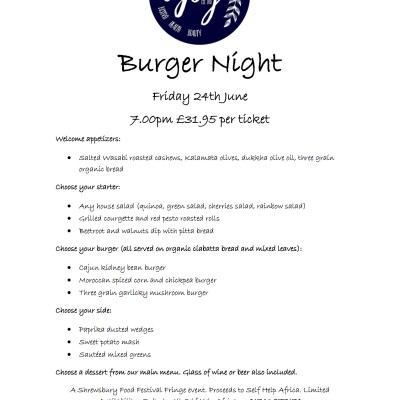 JUSTICE HEALTH BEAUTY
Burger Night
Friday 24th June
7.00pm £31.95 per ticket
Welcome appetizers:
• Salted Wasabi roasted cashews, Kalamata olives, dukkha olive oil, three grain
organic bread
Choose your starter:
• Any house salad (quinoa, green salad, cherries salad, rainbow salad)
• Grilled courgette and red pesto roasted rolls
• Beetroot and walnuts dip with pitta bread
Choose your burger (all served on organic ciabatta bread and mixed leaves):
• Cajun kidney bean burger
• Moroccan spiced corn and chickpea burger
• Three grain garlicky mushroom burger
Choose your side:
• Paprika dusted wedges
• Sweet potato mash
• Sautéed mixed greens
Choose a dessert from our main menu. Glass of wine or beer also included.
A Shrewsbury Food Festival Fringe event. Proceeds to Self Help Africa. Limited